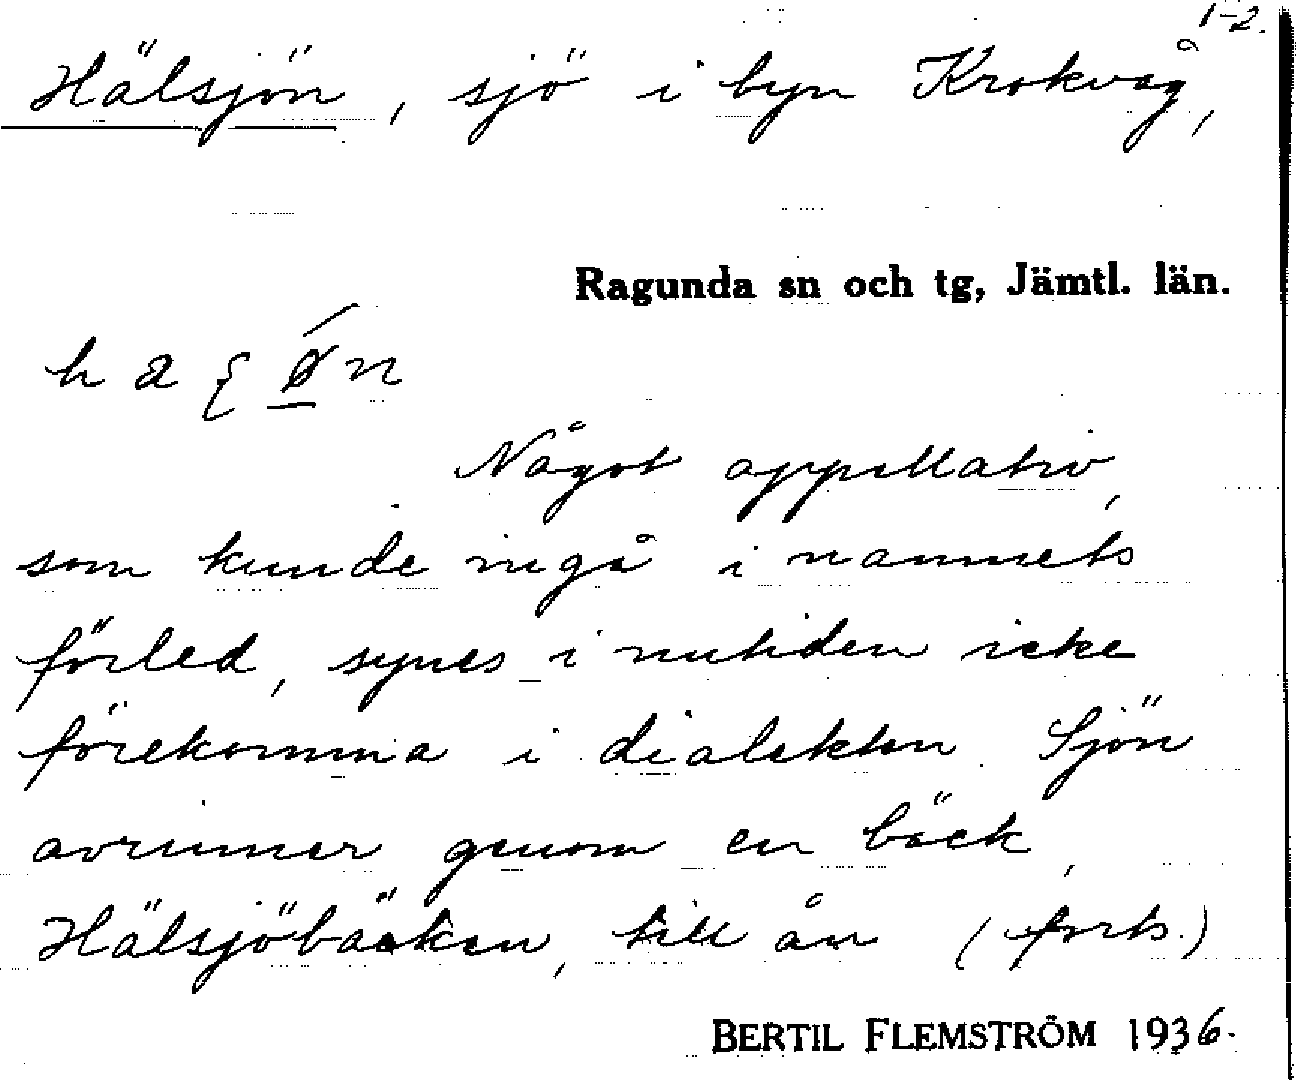 1-2.
Hälsjön, sjö i byn Krokvåg,
Ragunda sn och tg, Jämtl. län.
Något appellativ,
som kunde ingå i namnets
förled, synes i nutiden icke
förekomma i dialekten. Sjön
avrinner genom en bäck,
Hälsjöbäcken, till ån (forts.)
BERTIL FLEMSTRÖM 1936.